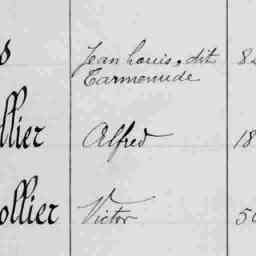 s Jean Louis, dit 84
Carmenude
llier Alfred 18
ollier Victor 50